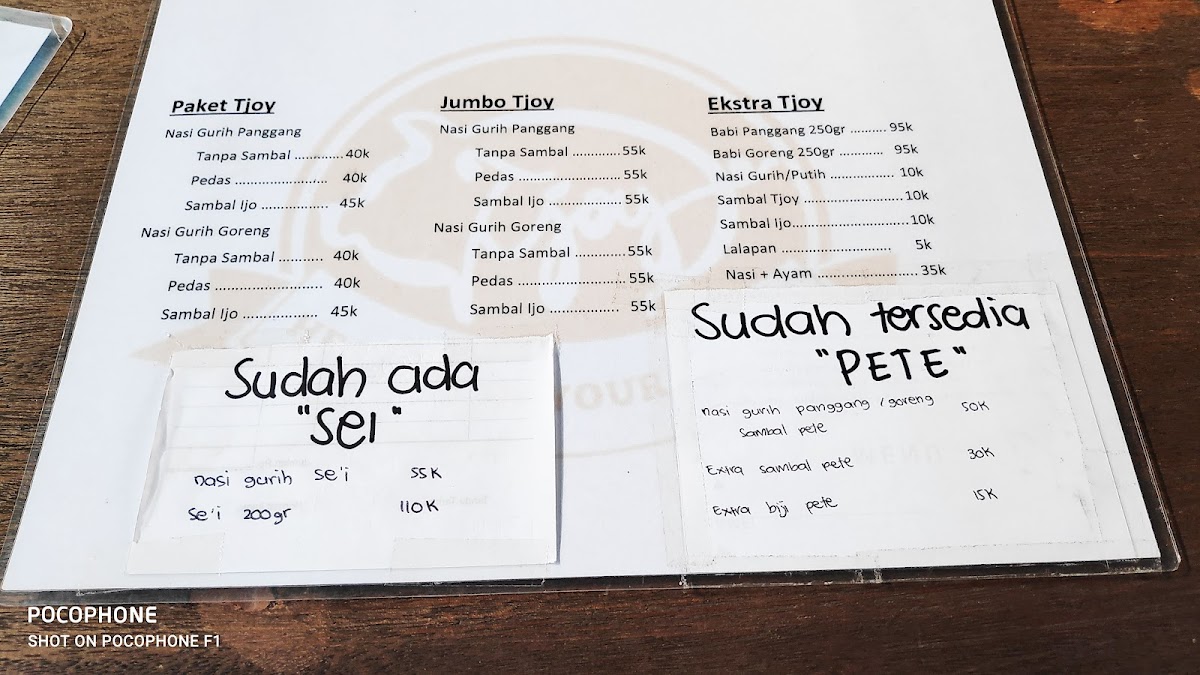 Paket Tjoy
Nasi Gurih Panggang
Tanpa Sambal ............. 40k
Pedas ......................... 40k
Sambal Ijo .................. 45k
Nasi Gurih Goreng
Tanpa Sambal ........... 40k
Pedas ........................... 40k
Sambal Ijo ................... 45k
Jumbo Tjoy
Nasi Gurih Panggang
Tanpa Sambal ............. 55k
Pedas ........................... 55k
Sambal Ijo .................... 55k
Nasi Gurih Goreng
Tanpa Sambal ............. 55k
Pedas ............................ 55k
Sambal Ijo .................. 55k
Ekstra Tjoy
Babi Panggang 250gr .......... 95k
Babi Goreng 250gr ............ 95k
Nasi Gurih/Putih ................. 10k
Sambal Tjoy .......................... 10k
Sambal Ijo.............................. 10k
Lalapan ............................ 5k
Nasi + Ayam .......................... 35k
Tjoy
YOUR
MENU
Sudah ada
"SEI"
nasi gurih se'i 55K
Se'i 200gr 110K
Sudah tersedia
"PETE"
nasi gurih panggang / goreng 50K
sambal pete
Extra sambal pete 30K
Extra biji pete 15K
POCOPHONE
SHOT ON POCOPHONE F1